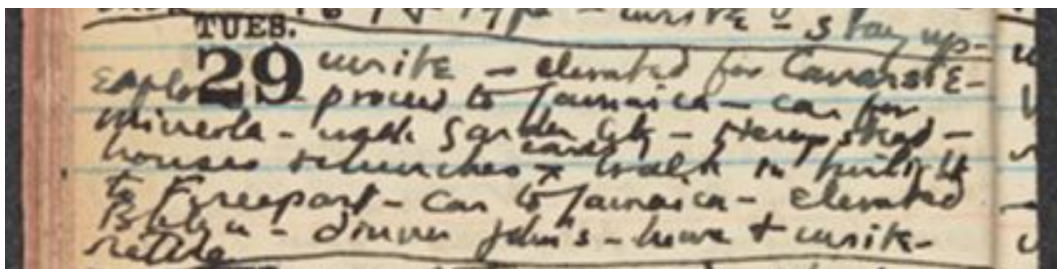 type - write - stay up -
TUES.
29 write - elevated for Canarsie -
explore - proceed to Jamaica - car for
Mineola - walk Garden City - Hempstead -
houses & churches walk in twilight
to Freeport - car to Jamaica - elevated
Bklyn - dinner John's - home & write -
retire